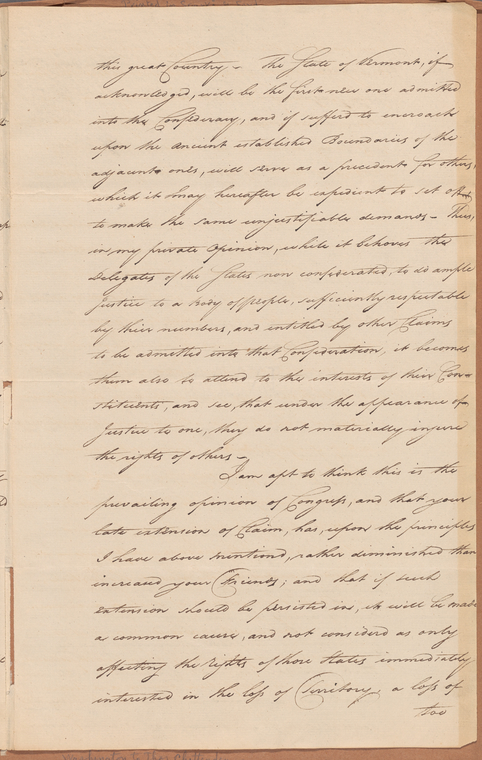 this great Country. – The State of Vermont, if
acknowledged, will be the first new one admitted
into the Confederacy, and if sufferd to encroach
upon the ancient established Boundaries of the
adjacent ones, will serve as a precedent for others,
which it may hereafter be expedient to set off,
to make the same unjustifiable demands – Thus,
in my private opinion, while it behoves the
Delegates of the States now confederated, to do ample
Justice to a body of people, sufficiently respectable
by their numbers, and entitled by other Claims
to be admitted into that Confederation, it becomes
them also to attend to the interests of their Con-
stituents, and see, that under the appearance of
Justice to one, they do not materially injure
the rights of others –
I am apt to think this is the
prevailing opinion of Congress, and that your
late extension of Claim, has, upon the principles
I have above mentiond, rather diminished than
increased your Friends; and that if such
extension should be persisted in, it will be made
a common cause, and not considerd as only
affecting the rights of those States immediately
interested in the loss of Territory, a loss of
too